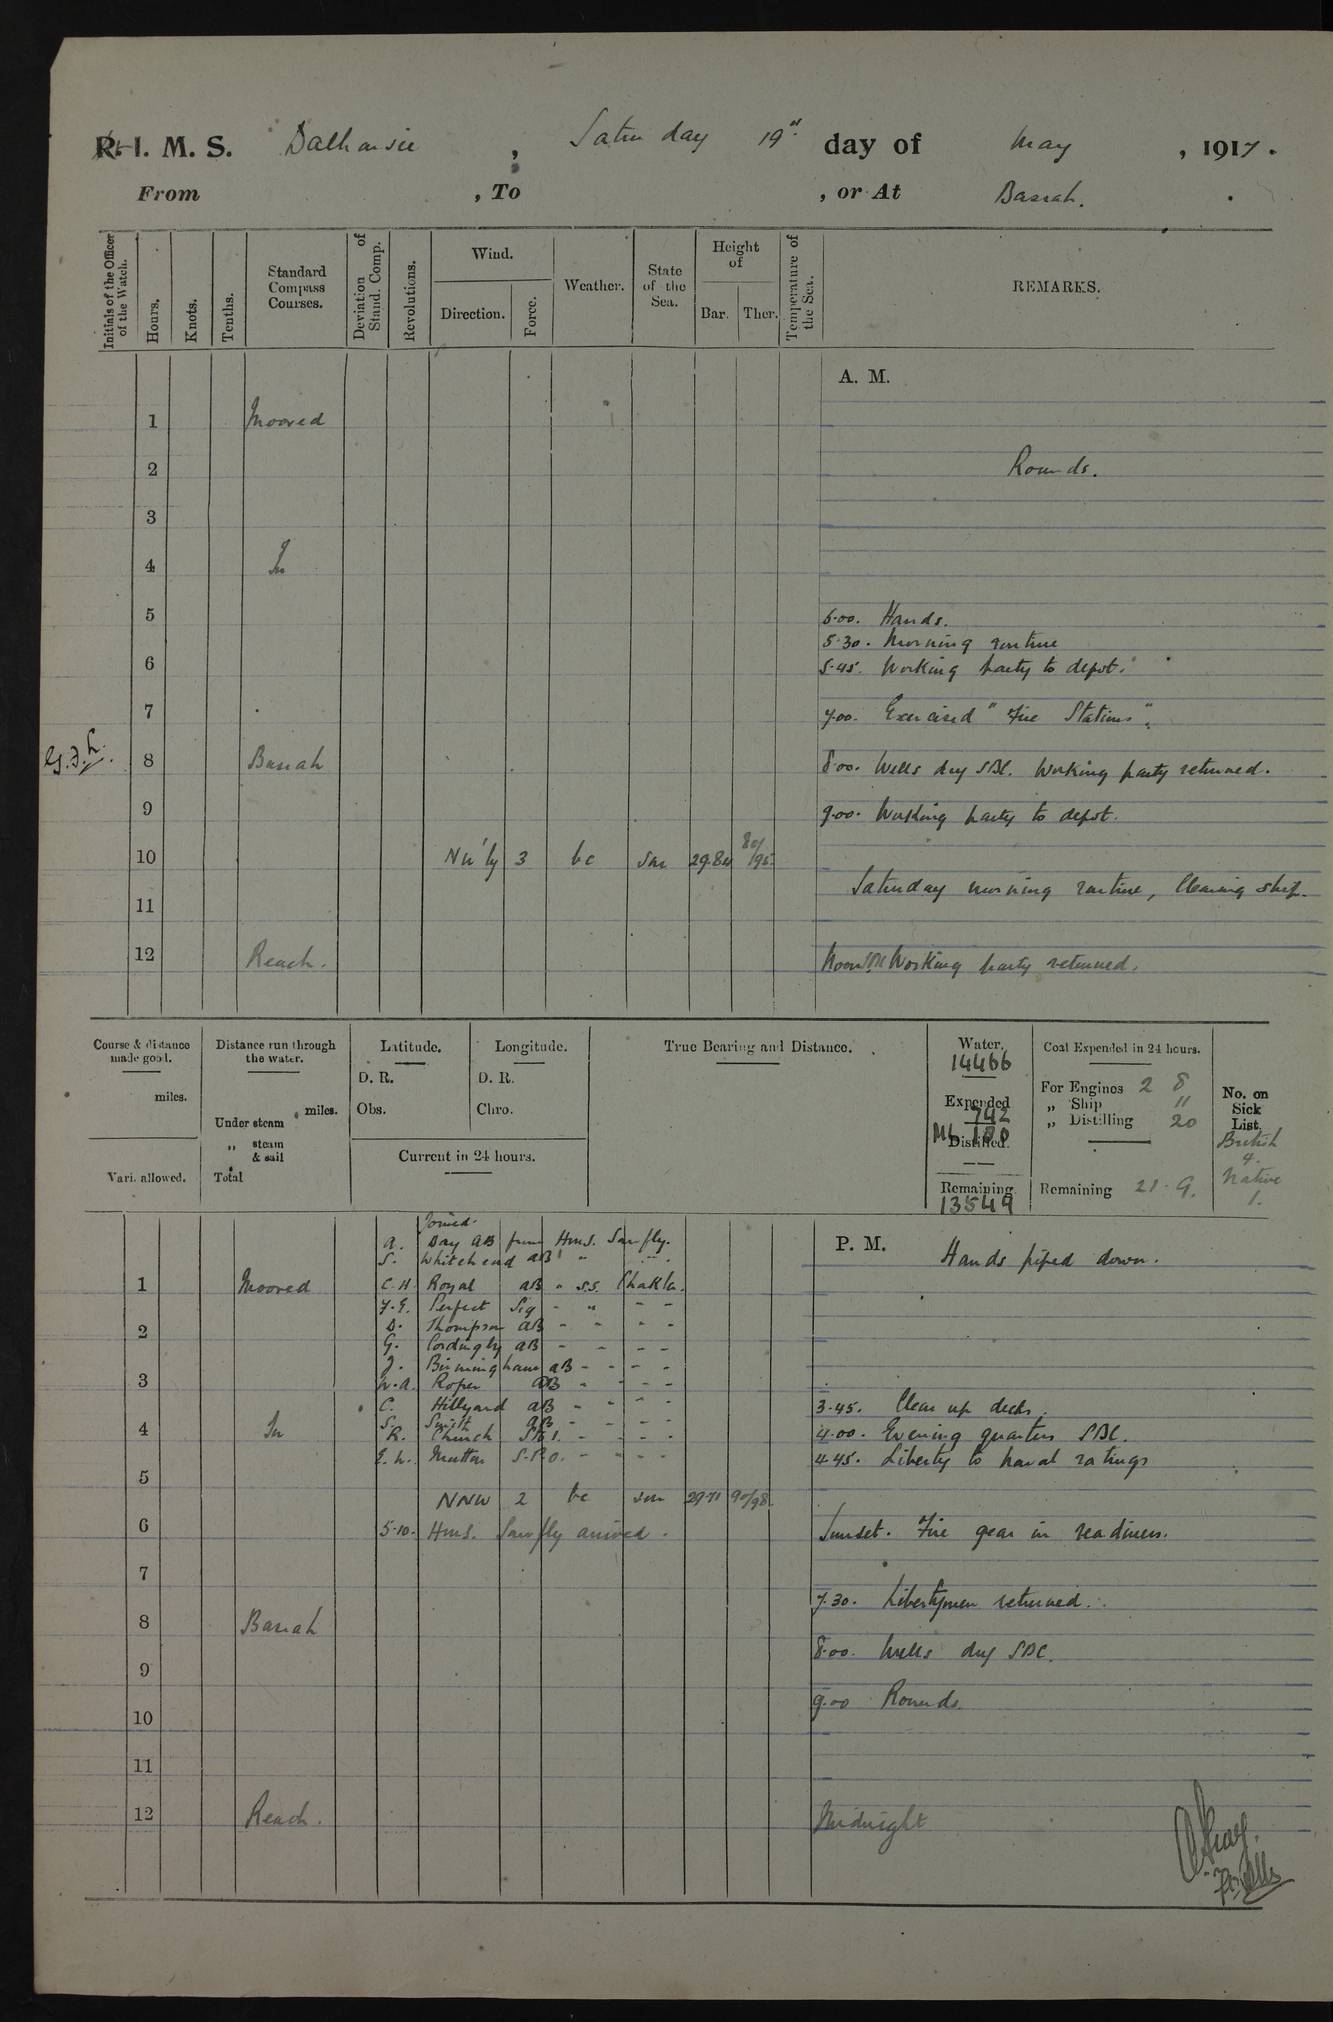 R. I. M. S. Dalhousie, Saturday 19th day of May, 1917.
From , To , or At Basrah.
Initials of the Officer of the Watch.
Hours.
Knots.
Tenths.
Standard Compass Courses.
Deviation of Stand. Comp.
Revolutions.
Wind.
Direction.
Force.
Weather.
State of the Sea.
Height of
Bar.
Ther.
Temperature of the Sea.
REMARKS.
A. M.
1 Moored
2 Rounds.
3
4 In
5 5.00. Hands.
5.30. Morning routine
6 5.45. Working party to depot.
7 7.00. Exercised "Fire Stations".
8 Basrah 8.00. Wells dry SBC. Working party returned.
9 9.00. Working party to depot.
10 NW'ly 3 bc sm 29.84 80/95
Saturday morning routine, Cleaning ship.
11
12 Reach. Noon Working party returned.
Course & distance made good.
miles.
Vari. allowed.
Distance run through the water.
miles.
Under steam
„ steam & sail
Total
Latitude.
D. R.
Obs.
Longitude.
D. R.
Chro.
Current in 24 hours.
True Bearing and Distance.
Water.
14466
Expended
742
Distilled.
Remaining
13549
Coal Expended in 24 hours.
For Engines 2 8
„ Ship 11
„ Distilling 20
Remaining 21. 9.
No. on Sick List.
British
4.
Native
1.
P. M.
Hands piped down.
Joined.
A. Day AB from Hms. Sawfly.
S. Whitehead AB " "
1 Moored C.H. Royal AB " S.S. Chakla.
Y.E. Perfect Sig - " - -
2 D. Thompson AB - - - -
G. Cordingly AB - - - -
J. Birmingham AB - - - -
3 W.A. Roper AB - - - -
C. Hillyard AB - - - - 3.45. Clear up decks.
S. Smith AB - - - -
4 In R. Church Sto 1. - - - - 4.00. Evening quarters SBC.
E.W. Mutton S.P.O. - - - - 4.45. Liberty to naval ratings
5
NNW 2 bc sm 29.71 90/98
6 5.10. Hms. Sawfly arrived. Sunset. Fire gear in readiness.
7
7.30. Libertymen returned.
8 Basrah
8.00. Wells dry SBC.
9
9.00 Rounds.
10
11
12 Reach. Midnight